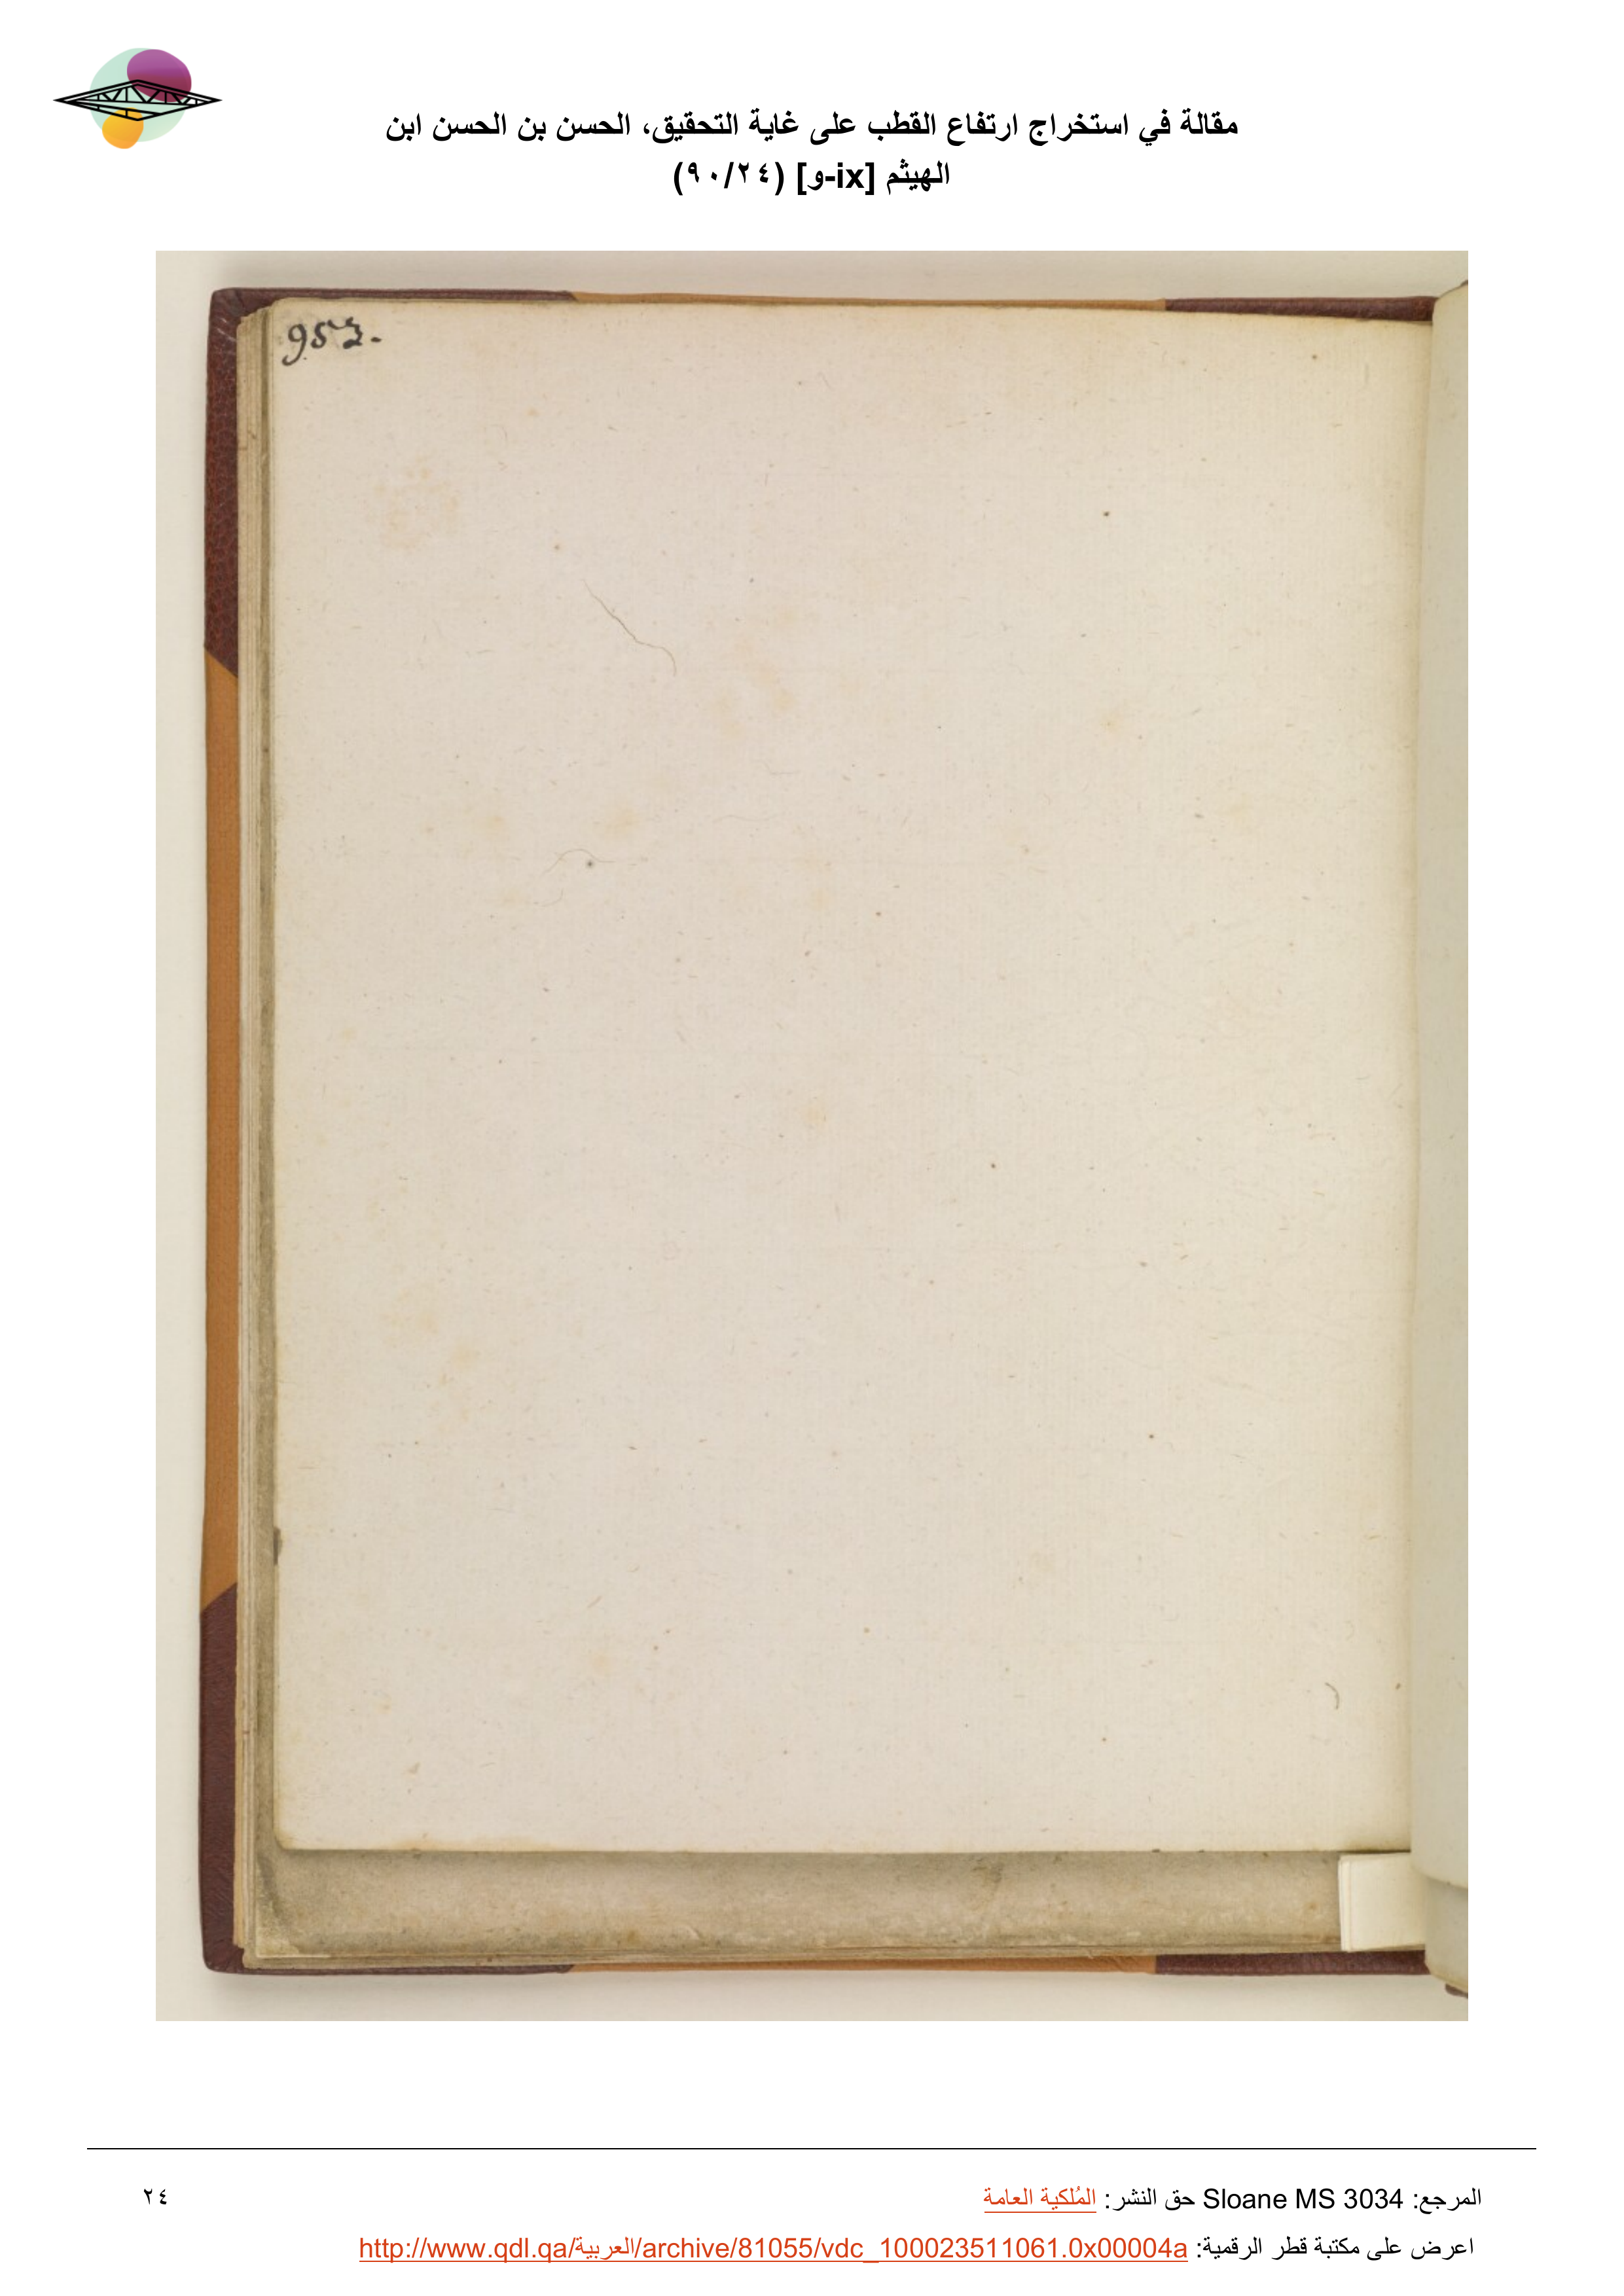 مقالة في استخراج ارتفاع القطب على غاية التحقيق، الحسن بن الحسن ابن
الهيثم [ix-و] (٩٠/٢٤)
953.
المرجع: Sloane MS 3034 حق النشر: المُلكية العامة
٢٤
اعرض على مكتبة قطر الرقمية: http://www.qdl.qa/العربية/archive/81055/vdc_100023511061.0x00004a